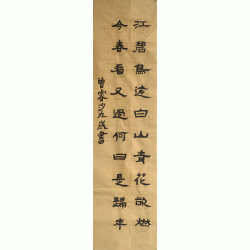 江碧鳥逾白山青花欲燃
今春看又過何日是歸年
曾客沙九歲書